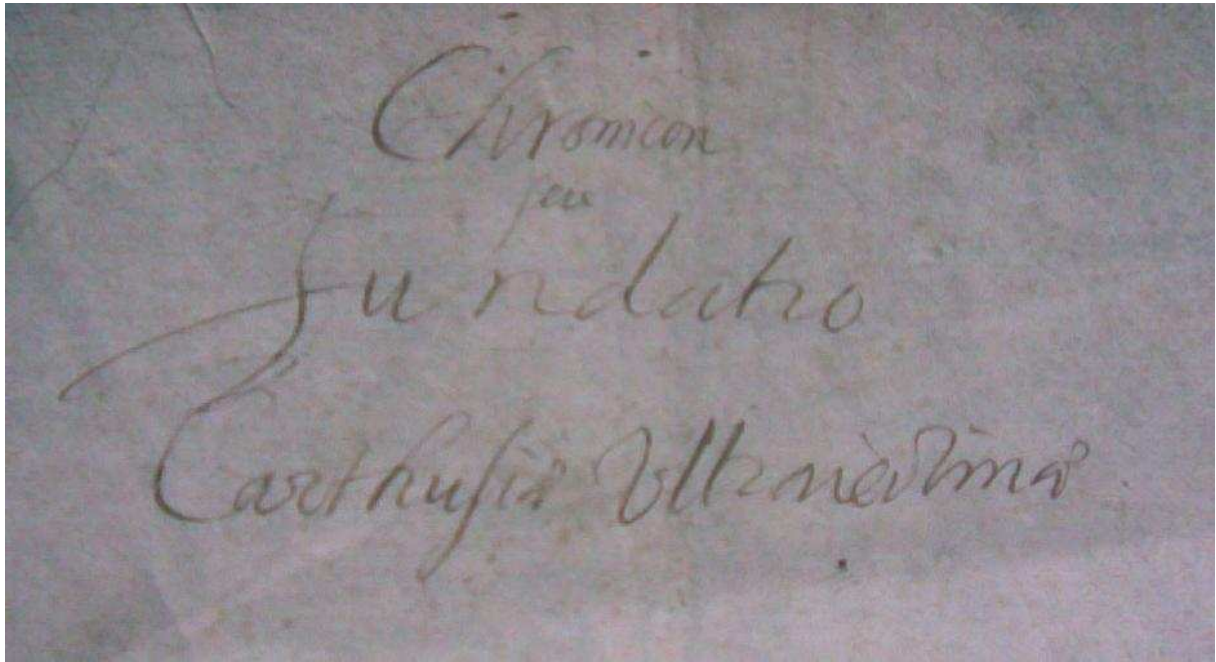 Chronicon
seu
Fundatio
Carthusiæ Vltraiectinæ.